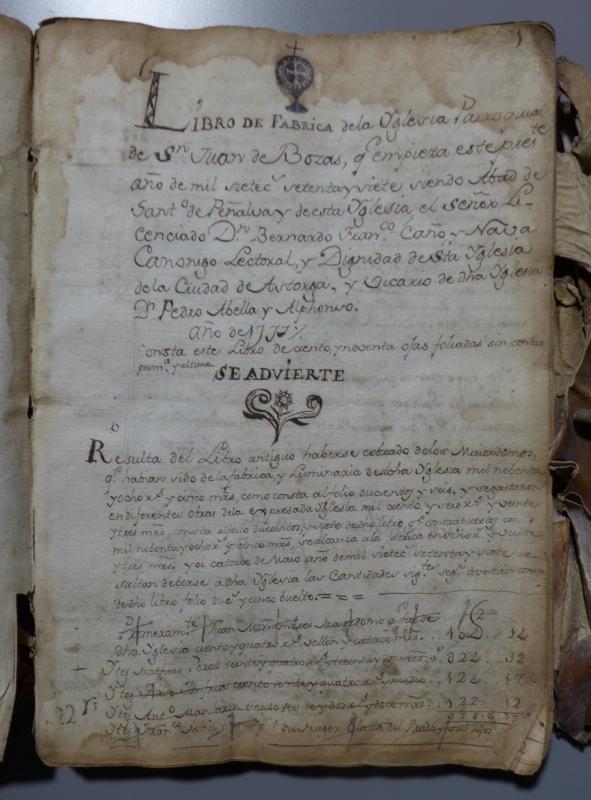 LIBRO DE FABRICA dela Yglesia Parroquial
de Sn Juan de Bozas, q empieza este preste
año de mil sietec setenta y siete siendo Abad de
Santo de Peñalva y de esta Yglesia, el señor Li-
cenciado Dn Bernardo Franco Caño, y Nava
Canonigo Lectoral, y Dignidad de Sta Yglesia
de la Ciudad de Astorga, y Vicario de dha Yglesia
Dn Pedro Abella y Alphonso.
año de 1777
Consta este Libro de ciento, y noventa ojas foliadas sin contar
prima y ultima
SE ADVIERTE
Resulta del Libro antiguo haberse cobrado delos Maiordomos
q habian sido de la fabrica, y Luminaria de dcha Yglesia mil nobenta
y ocho Rs y cinco mrs, como consta al folio ducientos y seis, y se gastaron
en diferentes obras dela expresada Yglesia mil ciento, y seis Rs y veinte
y tres mrs, consta al folio ducientos, y siete de dho libro, q contrapuestos con
mil nobenta y ocho rs y cinco mrs, se alcanza ala fabrica en ocho rs y veinte
y tres mrs. y oi catorce de Maio año de mil sietec setenta y siete re-
sultan deberse a dha Yglesia las Cantidades sigtes segn tambien consta
de dho libro folio duc y cinco buelto. = = =
Juan Maiordomo q fue de
dha Yglesia ciento y quatro rs vellon y catorce mrs. 14
Ytt Matias Perez veinte y quatro rs treinta y dos mrs. 024 .. 32
Ytt ciento veinte y quatro rs y medio. 124 .. 17
Ytt Anto ciento veinte y dos rs y doce mrs. 122 .. 12
22 rs
Ytt Franco su Muger